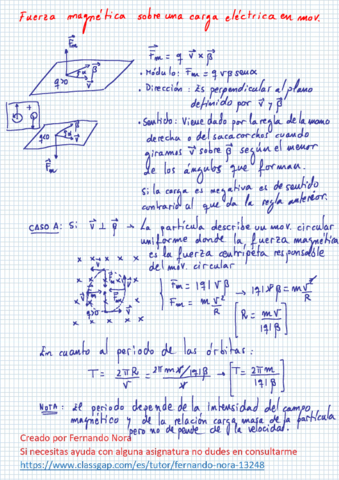 Fuerza magnética sobre una carga eléctrica en mov.
F⃗m
β⃗
v⃗
q>0
F⃗m = q v⃗ × β⃗
• Módulo: Fm = q v β senα
• Dirección: Es perpendicular al plano
definido por v⃗ y β⃗
• Sentido: Viene dado por la regla de la mano
derecha o del sacacorchos cuando
giramos v⃗ sobre β⃗ según el menor
de los ángulos que forman.
Si la carga es negativa es de sentido
contrario al que da la regla anterior.
q<0
F⃗m
CASO A: Si v⃗ ⊥ → La partícula describe un mov. circular
uniforme donde la fuerza magnética
es la fuerza centrípeta responsable
del mov. circular
Fm = |q| v β
Fm = m v²/R
→ |q| β = m v/R
[R = m v / |q| β]
En cuanto al periodo de las órbitas:
T = 2πR / v = 2π m v / v |q| β → [T = 2π m / |q| β]
NOTA: El periodo depende de la intensidad del campo
magnético y de la relación carga masa de la partícula
pero no depende de la velocidad.
Creado por Fernando Nora
Si necesitas ayuda con alguna asignatura no dudes en consultarme
https://www.classgap.com/es/tutor/fernando-nora-13248